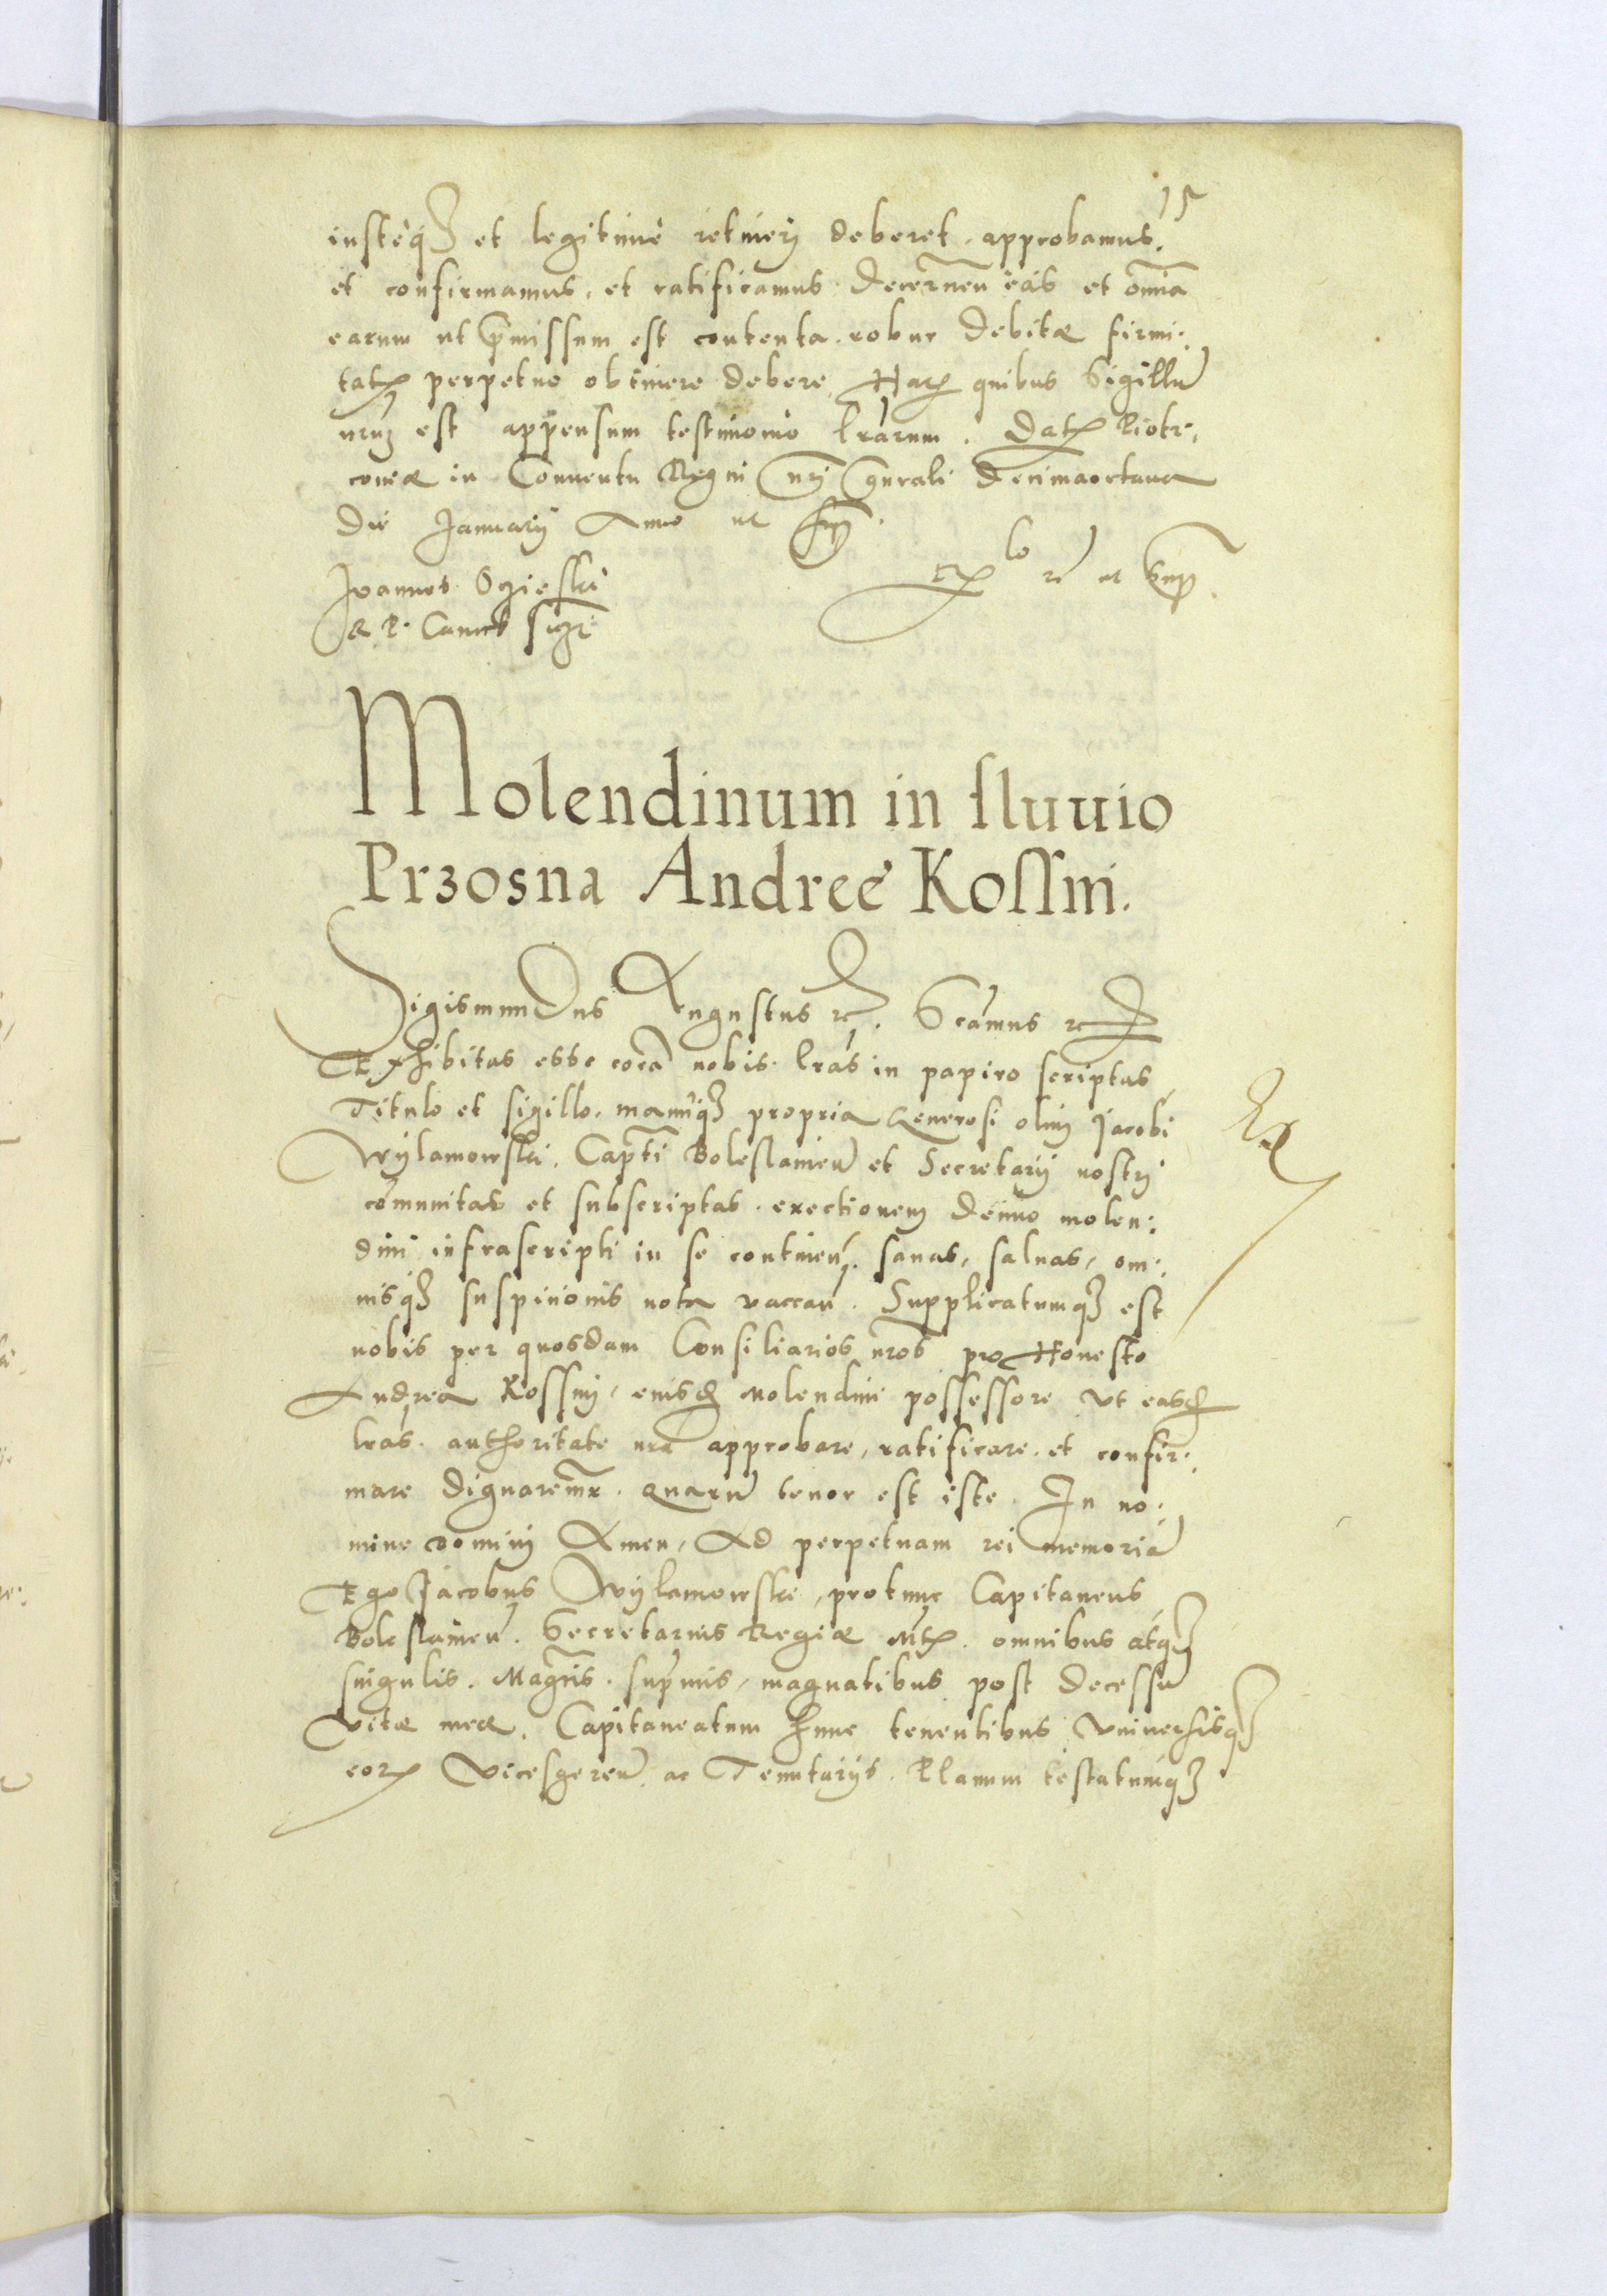 15
iusteq₃ et legitime retinerj deberet, approbamus,
et confirmamus, et ratificamus. Decernen̄ eas et om̄ia
earum ut p̄missum est contenta. robur debitæ firmi:
tatꝭ perpetuo obtinere debere Harꝭ quibus Sigillū
nrūm est appensum testimonio lrārum. Datꝭ Piotr:
coviæ in Conuentu Regni nrī gn̄rali Decimaoctaua
die Januarij Anno ut sup̄.
Joannes Oczieski
R. P. Cancᵇ
Relᵒ rc̄ ut sup̄.
Molendinum in fluuio
Przosna Andreę Kossm.
Sigismundus Augustus rc̄. Sc̄amus rc̄
Exhibitas esse corā nobis lrās in papiro scriptas,
Titulo et sigillo, manuq₃ propria Generosi olim Jacobi
Wylamowski, Capt̄i Boleslauień et Secretarij nostrj
cōmunitas et subscriptas. erectionem denuo molen:
dini infrascripti in se continen̄. sanas, saluas, om:
nisq₃ suspicionis nota vaccan̄. Supplicatumq₃ est
nobis per quosdam Consiliarios nrōs pro Honesto
Andrea Kossmj, eiusdꝭ Molendini possessore ut easdꝭ
lrās. authoritate nrā approbare, ratificare, et confir:
mare dignarem̄r. quarū tenor est iste. In no:
mine dominj Amen, Ad perpetuam rei memoriā
Ego Jacobus Wylamowski, protunc Capitaneus
Boleslauień. Secretarius Regiæ Mtꝭ. omnibus atq₃
singulis. Magr̄is. sup̄mis, magnatibus post decessū
vitæ meæ, Capitaneatum hunc tenentibus vniuersisq₃
eorꝭ vicesgeren̄. ac Tenutarijs. Planum testatumq₃